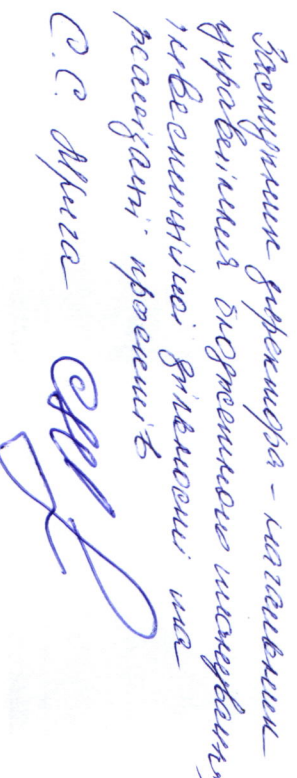 Заступник директора - начальник
управління бюджетного планування,
інвестиційної діяльності та
реалізації проектів
С.С. Мрига